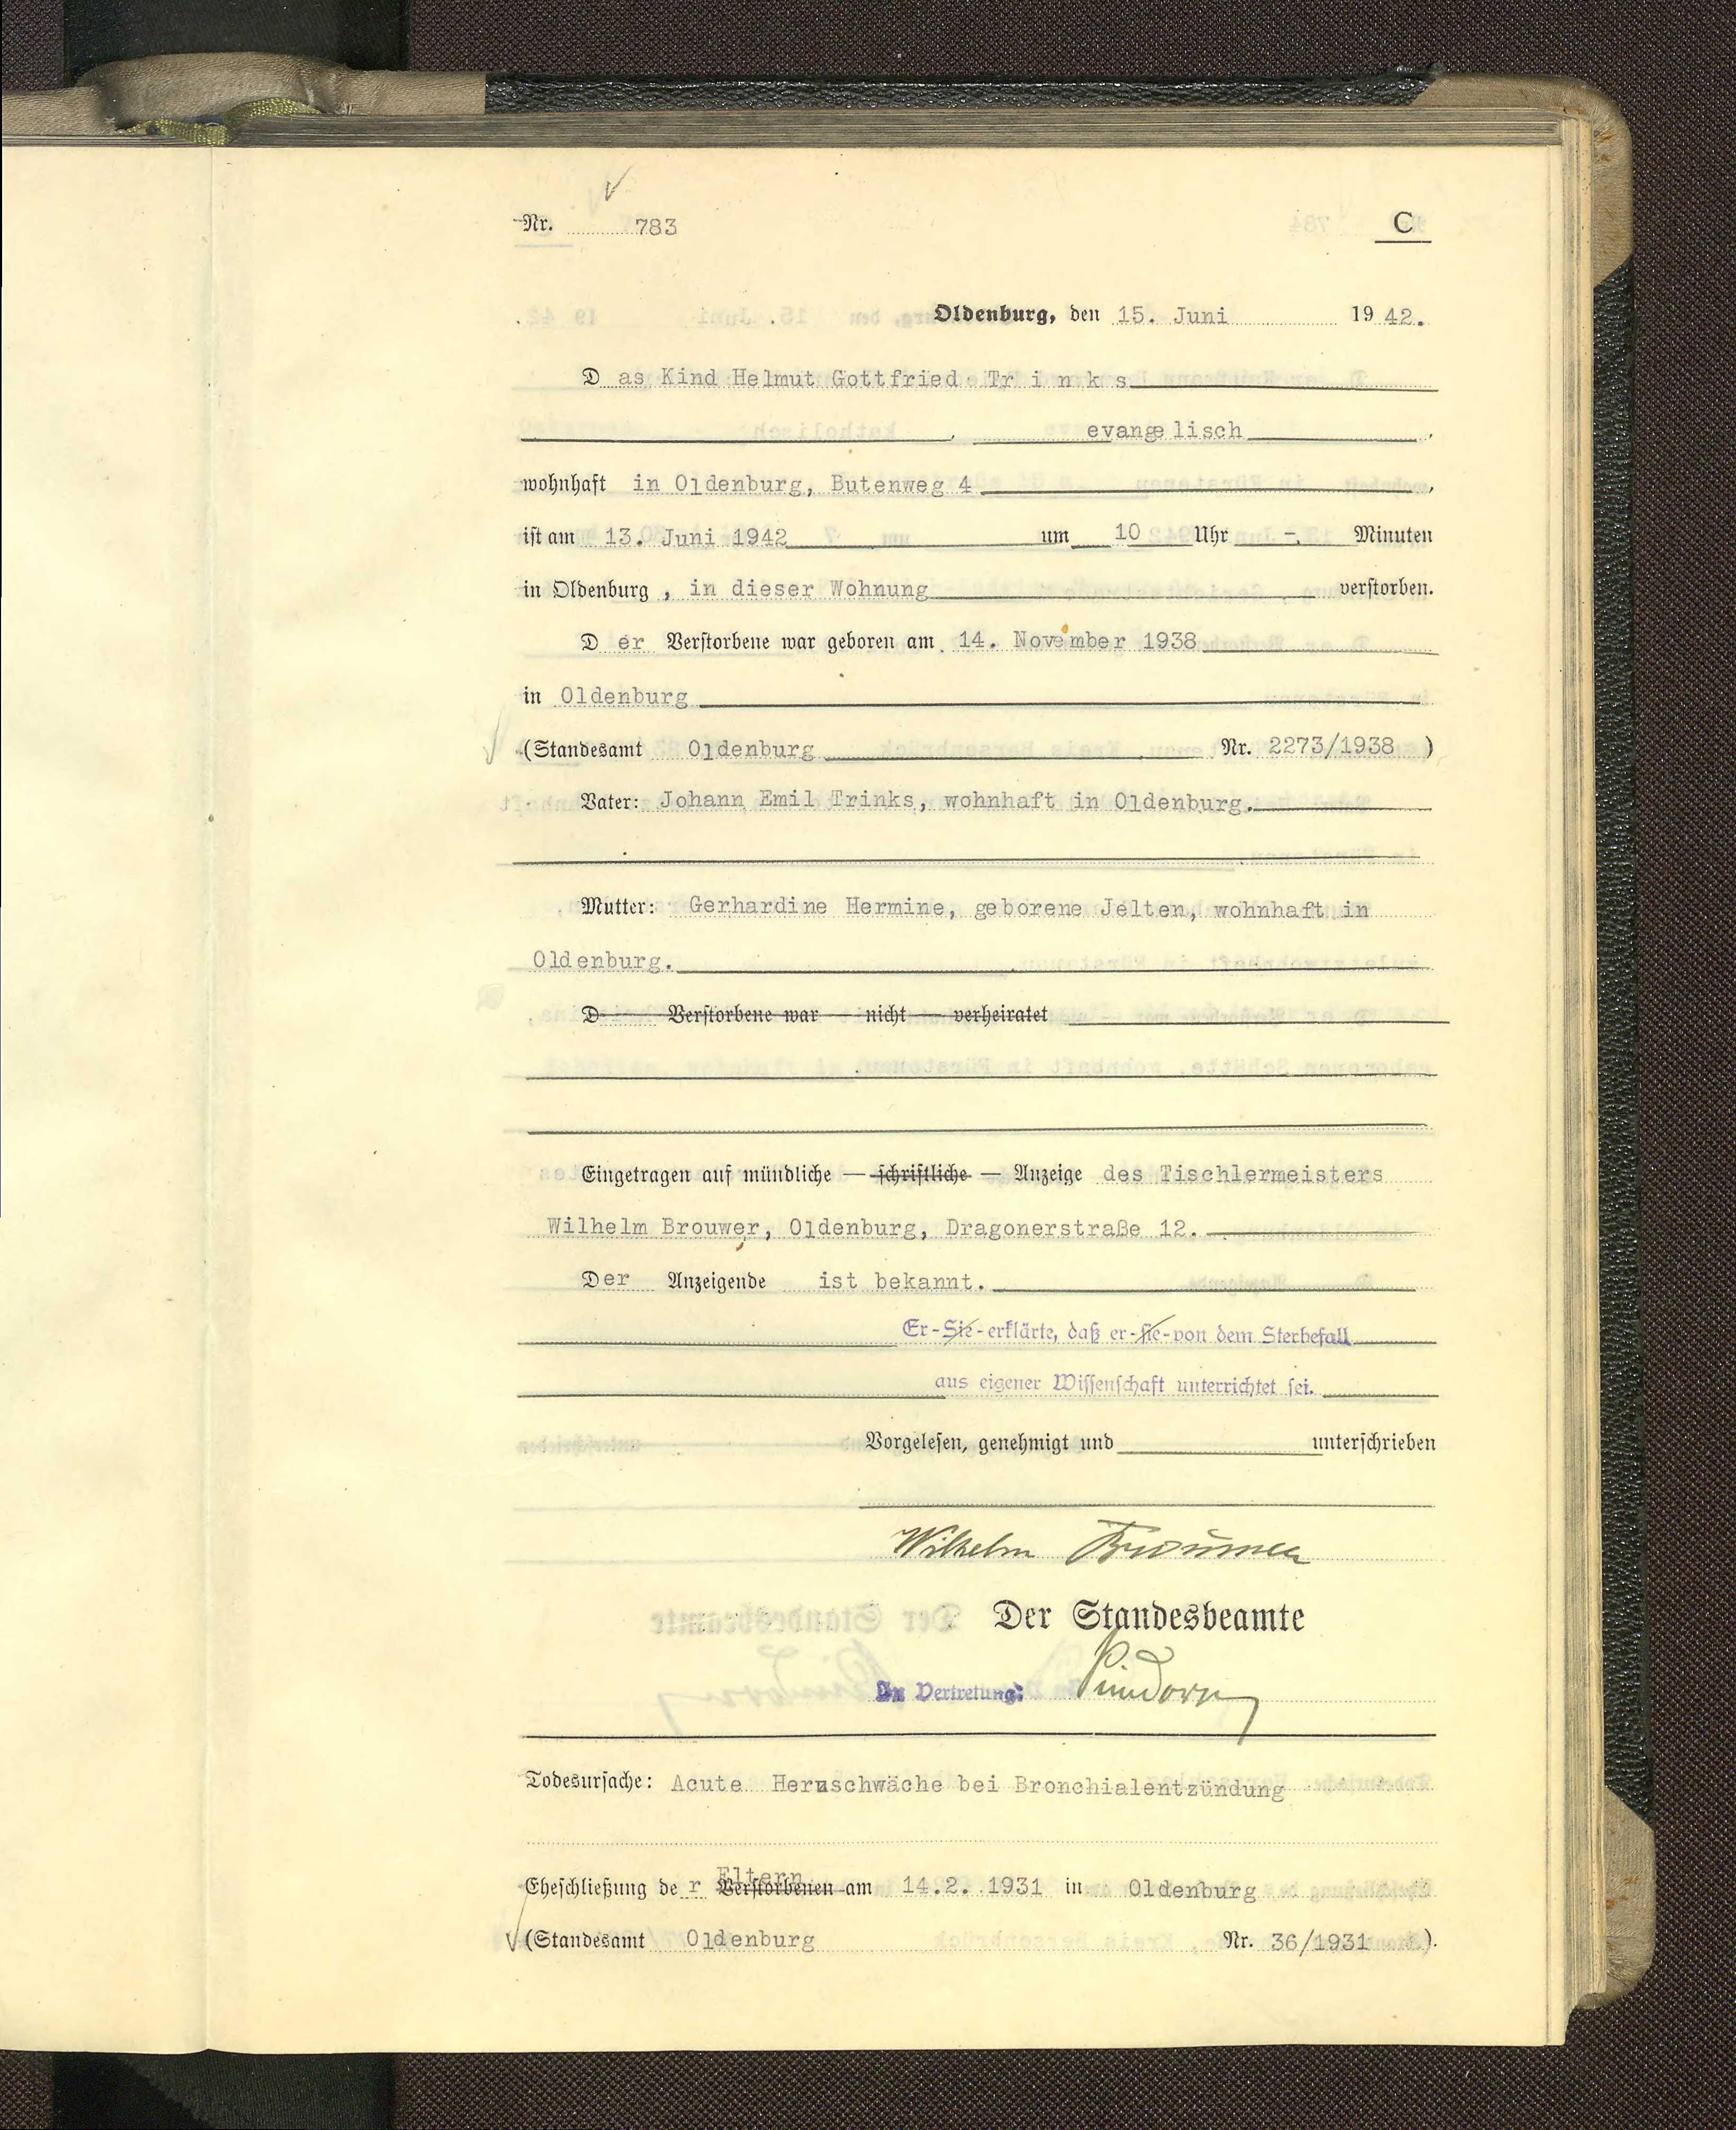 Nr. 783 C
Oldenburg, den 15. Juni 1942.
Das Kind Helmut Gottfried Trinks
, evangelisch ,
wohnhaft in Oldenburg, Butenweg 4 ,
ist am 13. Juni 1942 um 10 Uhr -. Minuten
in Oldenburg, in dieser Wohnung verstorben.
Der Verstorbene war geboren am 14. November 1938
in Oldenburg
(Standesamt Oldenburg Nr. 2273/1938 )
Vater: Johann Emil Trinks, wohnhaft in Oldenburg.
Mutter: Gerhardine Hermine, geborene Jelten, wohnhaft in
Oldenburg.
D Verstorbene war nicht verheiratet
Eingetragen auf mündliche — schriftliche — Anzeige des Tischlermeisters
Wilhelm Brouwer, Oldenburg, Dragonerstraße 12.
Der Anzeigende ist bekannt.
Er-Sie-erklärte, daß er-sie-von dem Sterbefall
aus eigener Wissenschaft unterrichtet sei.
Vorgelesen, genehmigt und unterschrieben
Wilhelm Brouwer
Der Standesbeamte
In Vertretung:
Todesursache: Acute Herzschwäche bei Bronchialentzündung
Eltern
Eheschließung der Verstorbenen am 14.2. 1931 in Oldenburg
(Standesamt Oldenburg Nr. 36/1931 ).